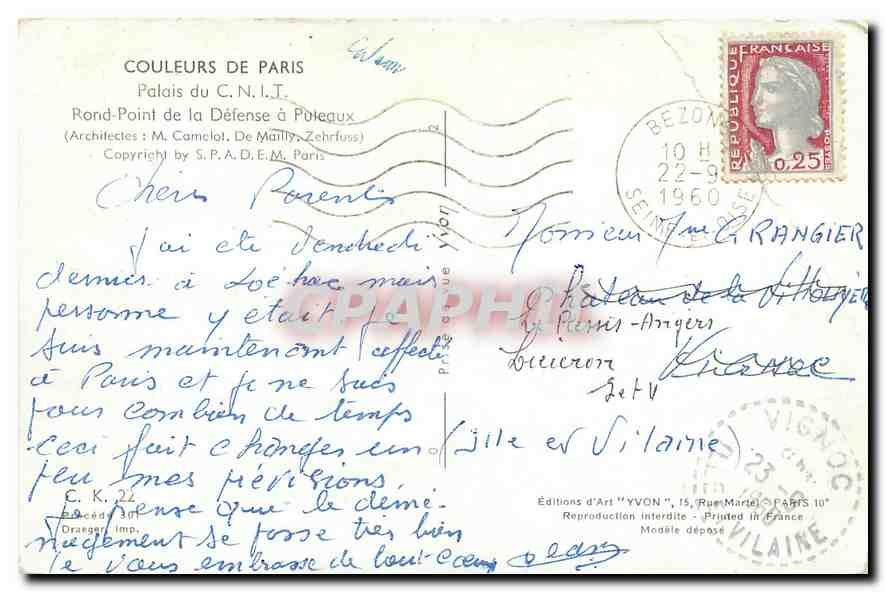 COULEURS DE PARIS
Palais du C.N.I.T.
Rond-Point de la Défense à Puteaux
(Architectes : M. Camelot. De Mailly. Zehrfuss)
Copyright by S.P.A.D.E.M. Paris
Chers Parents
J'ai été Vendredi
dernier à Lohéac mais
personne y était je
suis maintenant affecté
à Paris et je ne sais
pour combien de temps
ceci fait changer un
peu mes prévisions.
Je pense que le démé-
nagement se passe très bien
je vous embrasse de tout coeur
C. K. 22
Procédé 301
Draeger Imp.
Prise de vue Yvon
RÉPUBLIQUE FRANÇAISE
0,25
POSTES
BEZONS
10 H
22-9
1960
SEINE ET OISE
Monsieur Mme GRANGIER
Château de la
Le Plessis-Angers
Lieuron
I et V
(Ille et Vilaine)
VIGNOC
23
VILAINE
Éditions d'Art "YVON", 15, Rue Martel - PARIS 10e
Reproduction interdite - Printed in France
Modèle déposé
CPAPHIL